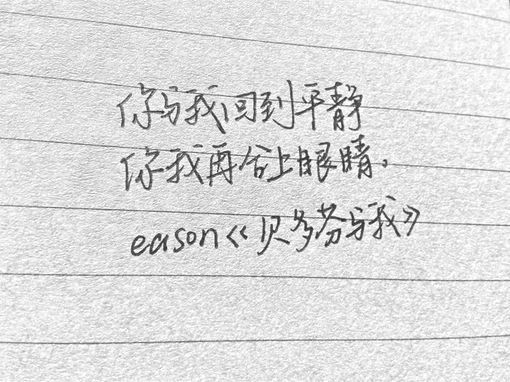 你与我回到平静
你我再合上眼睛。
eason《贝多芬与我》